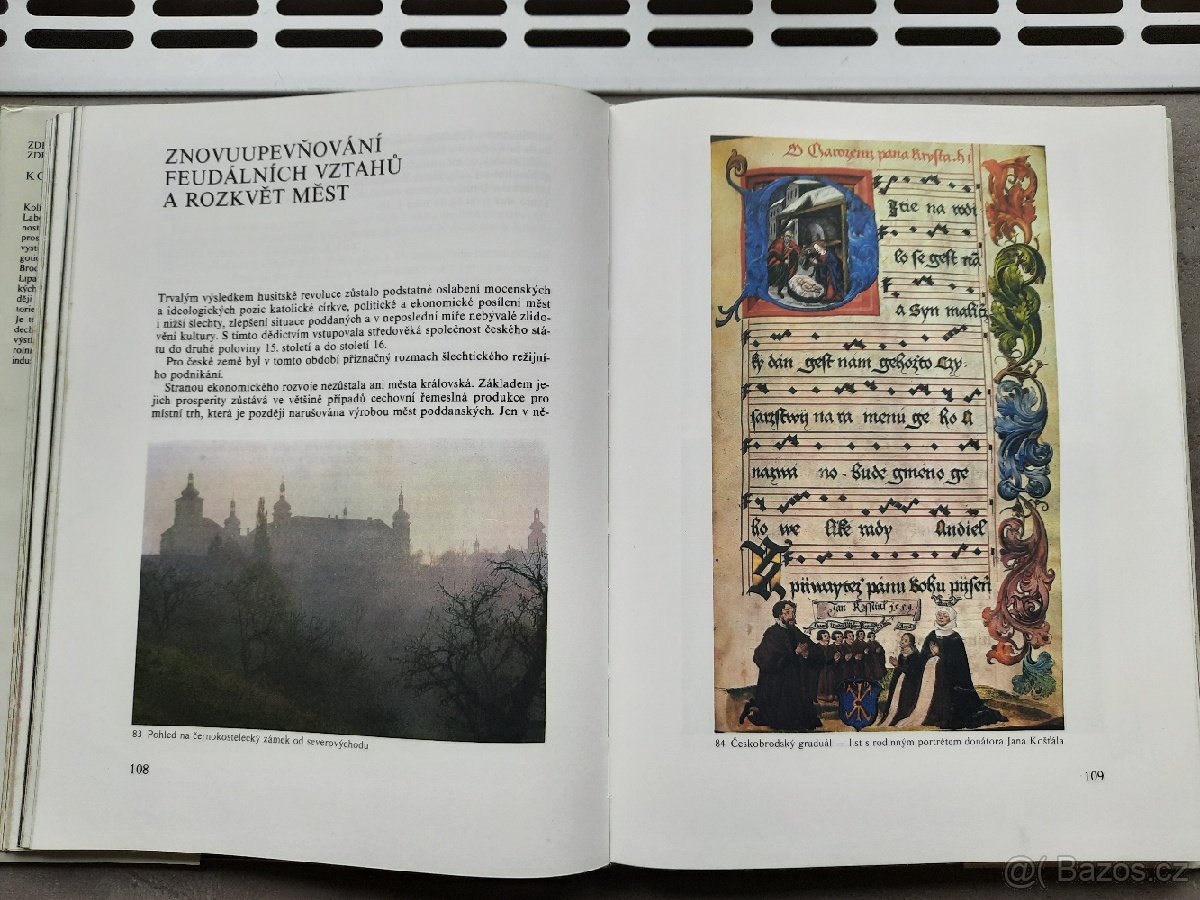 ZNOVUUPEVŇOVÁNÍ
FEUDÁLNÍCH VZTAHŮ
A ROZKVĚT MĚST
Trvalým výsledkem husitské revoluce zůstalo podstatné oslabení mocenských
a ideologických pozic katolické církve, politické a ekonomické posílení měst
i nižší šlechty, zlepšení situace poddaných a v neposlední míře nebývalé zlido-
vění kultury. S tímto dědictvím vstupovala středověká společnost českého stá-
tu do druhé poloviny 15. století a do století 16.
Pro české země byl v tomto období příznačný rozmach šlechtického režijní-
ho podnikání.
Stranou ekonomického rozvoje nezůstala ani města královská. Základem je-
jich prosperity zůstává ve většině případů cechovní řemeslná produkce pro
místní trh, která je později narušována výrobou měst poddanských. Jen v ně-
83 Pohled na černokostelecký zámek od severovýchodu
108
pana Krysta
na
lo se gest
a Syn
ky dán gest nam
na ra menu ge
no bude gmeno ge
ho we
Andiel
pánu bohu
84 Českobrodský graduál — list s rodinným portrétem donátora Jana Košťála
109
@( Bazos.cz